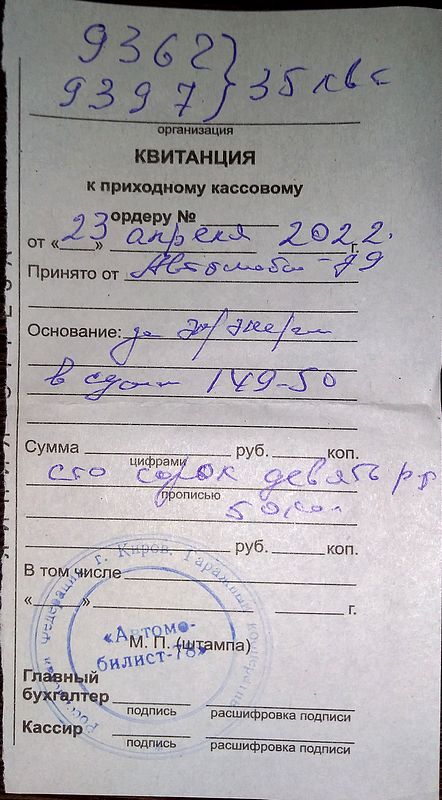 9362
9397 } 35 квт
организация
КВИТАНЦИЯ
к приходному кассовому
ордеру №
от «23» апреля 2022 г.
Принято от Автомоби -79
Основание: за эл/энерги
в сумме 149-50
Сумма руб. коп.
цифрами
сто сорок девять р
прописью
50 коп
руб. коп.
В том числе
« » г.
Российская Федерация, г. Киров, Гаражный кооператив
«Автомо-
билист-78»
М. П. (штампа)
Главный
бухгалтер
подпись расшифровка подписи
Кассир
подпись расшифровка подписи